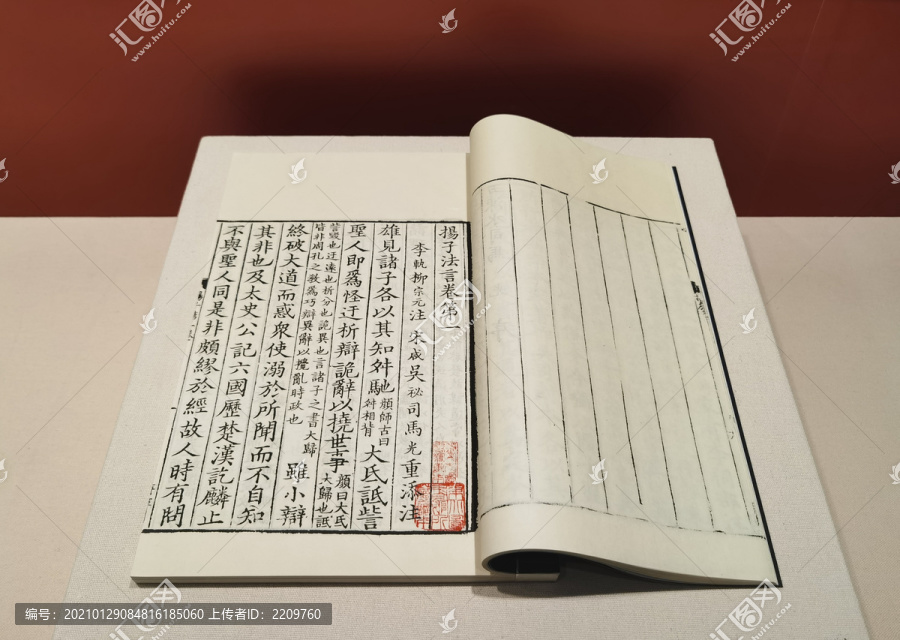 揚子法言卷第一
李軌柳宗元注 宋咸吳祕司馬光重添注
雄見諸子各以其知舛馳顏師古曰舛相背大氐詆訾
聖人即爲怪迂析辯詭辭以撓世事顏曰大氐大歸也詆
訾毀也迂遠也析分也詭異也言諸子之書大歸
皆非周孔之教爲巧辯異辭以攪亂時政也
雖小辯
終破大道而惑衆使溺於所聞而不自知
其非也及太史公記六國歷楚漢訖麟止
不與聖人同是非頗繆於經故人時有問
汇图网
www.huitu.com
编号: 20210129084816185060 上传者ID: 2209760